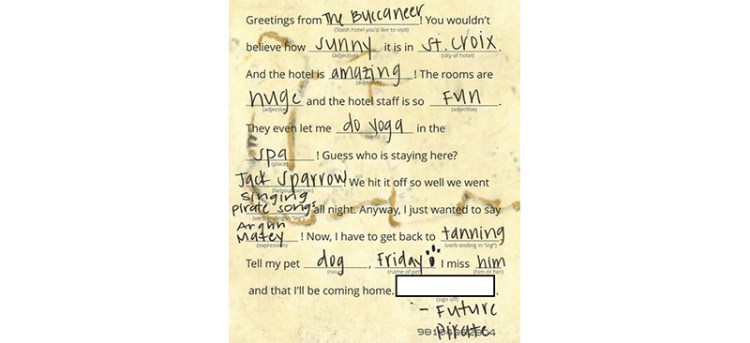 Greetings from The Buccaneer! You wouldn't
(Stash hotel you'd like to visit)
believe how sunny it is in St. Croix.
(adjective) (city of hotel)
And the hotel is amazing! The rooms are
(adjective)
huge and the hotel staff is so Fun.
(adjective) (adjective)
They even let me do yoga in the
spa! Guess who is staying here?
(place)
Jack Sparrow! We hit it off so well we went
(famous person)
singing
pirate songs all night. Anyway, I just wanted to say
(verb ending in "ing")
Arghh
Matey! Now, I have to get back to tanning
(expression) (verb ending in "ing")
Tell my pet dog, Friday I miss him
(noun) (name of pet) (him or her)
and that I'll be coming home.
(sign off)
- Future
pirate